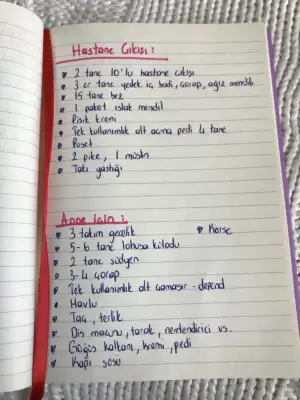 Hastane Çıkışı :
2 tane 10'lu hastane çıkışı
3 er tane yedek iç badi, çorap, ağız mendili
15 tane bez
1 paket ıslak mendil
Pişik kremi
Tek kullanımlık alt açma pedi 4 tane
Poşet
2 pike, 1 müslin
Takı yastığı
Anne için :
3 takım gecelik
Korse
5-6 tane lohusa kilodu
2 tane sütyen
3-4 çorap
Tek kullanımlık alt çamaşır - depend
Havlu
Taç, terlik
Diş macunu, tarak, nemlendirici vs.
Göğüs kalkanı, kremi, pedi
Kapı süsü